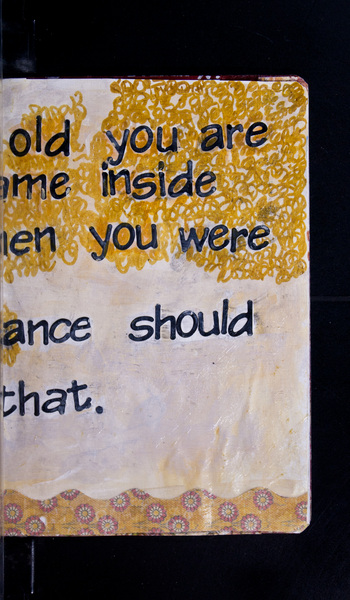 old you are
ame inside
hen you were
ance should
that.